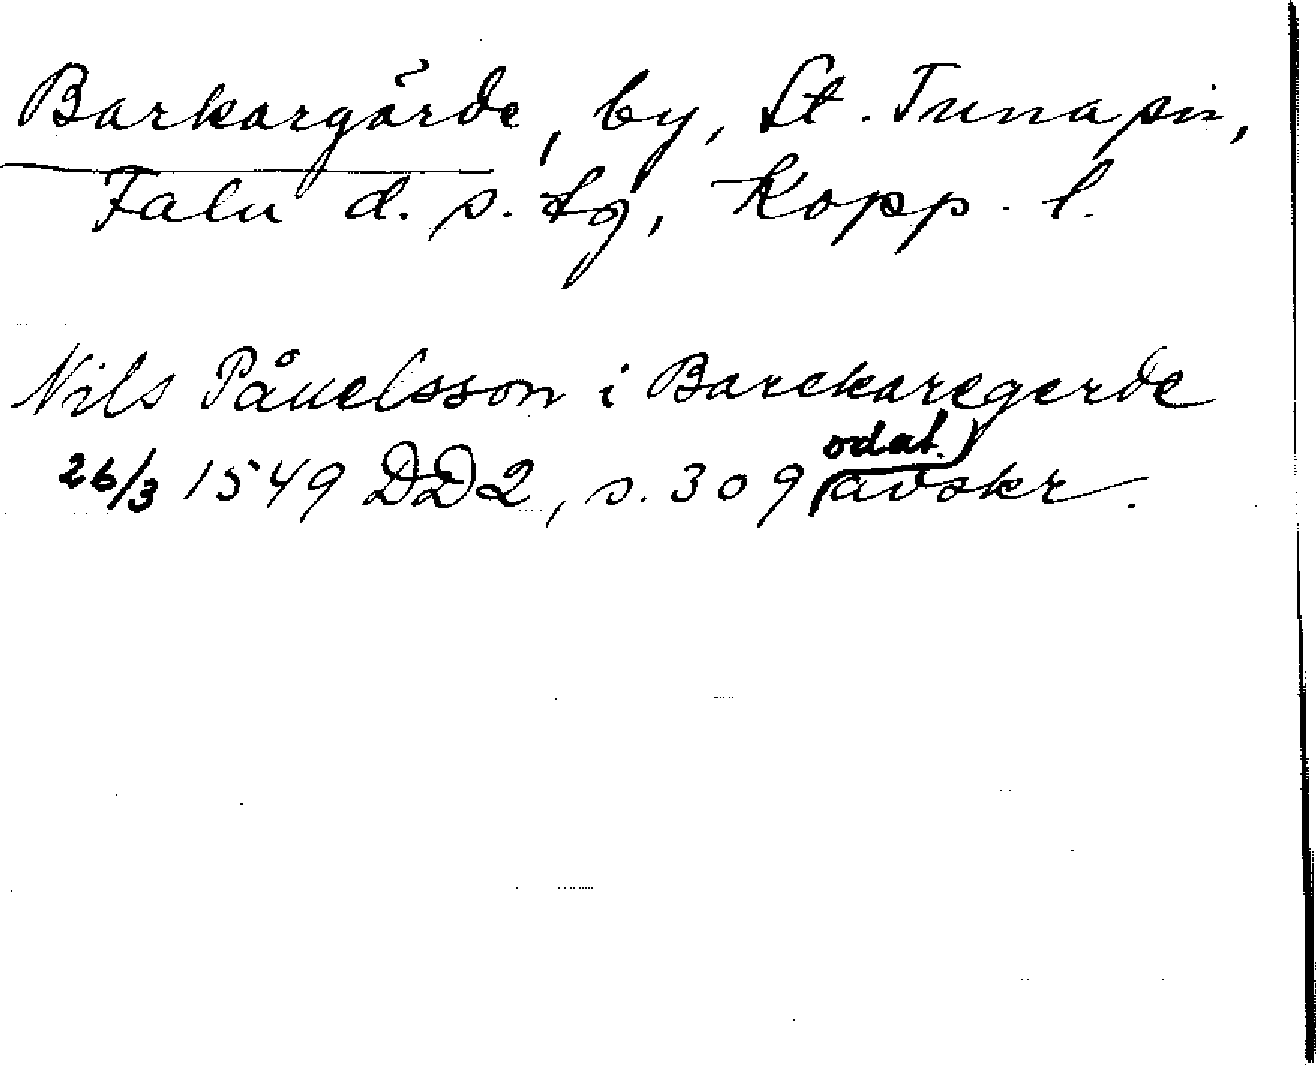 Barkargärde, by, St. Tuna sn,
Falu d. s. tg, Kopp. l.
Nils Påuelsson i Barckaregerde
26/3 1549 DD2, s. 309 (odat.) avskr.